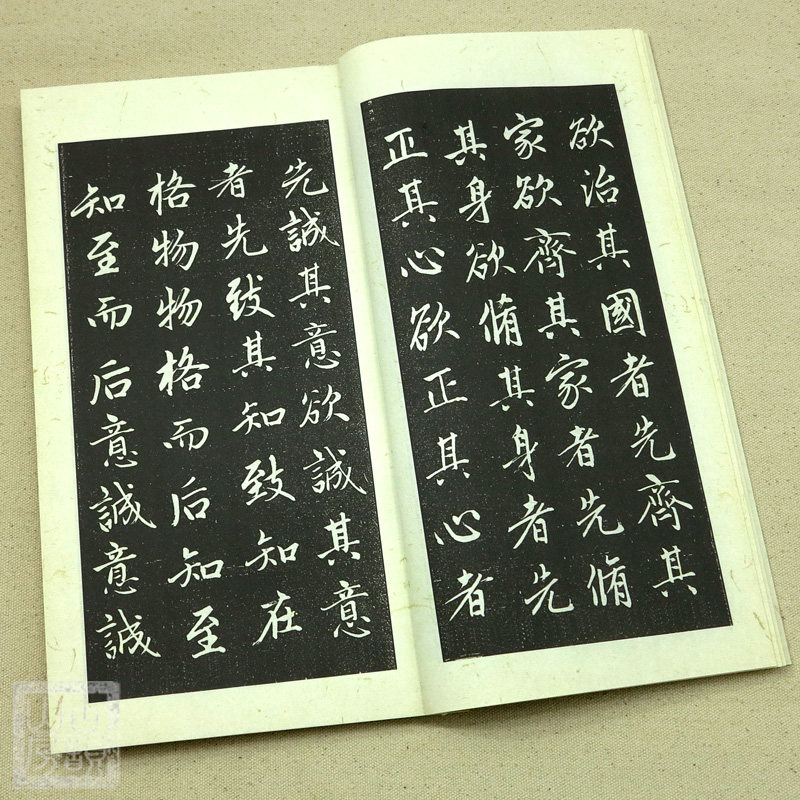 欲治其國者先齊其
家欲齊其家者先脩
其身欲脩其身者先
正其心欲正其心者
先誠其意欲誠其意
者先致其知致知在
格物物格而后知至
知至而后意誠意誠